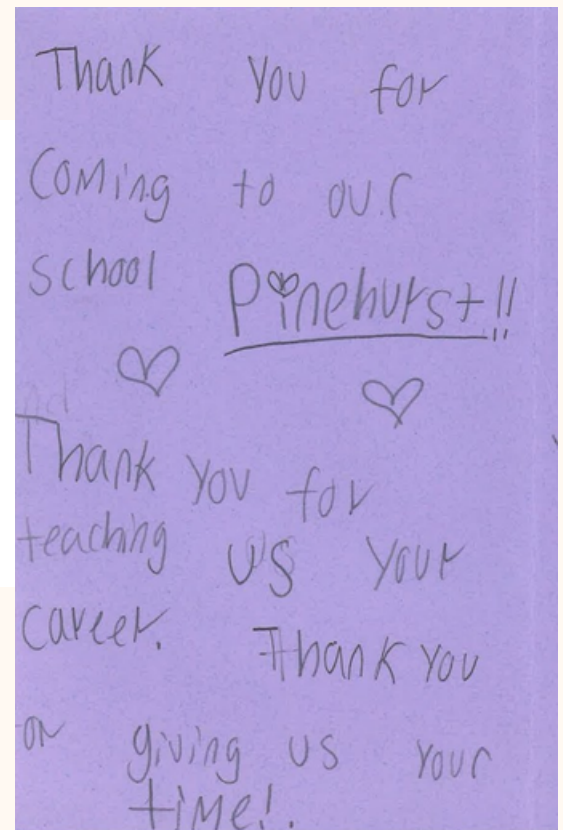 Thank You for
Coming to our
school Pinehurst!!
Thank you for
teaching us your
career. Thank you
giving us your
time!.